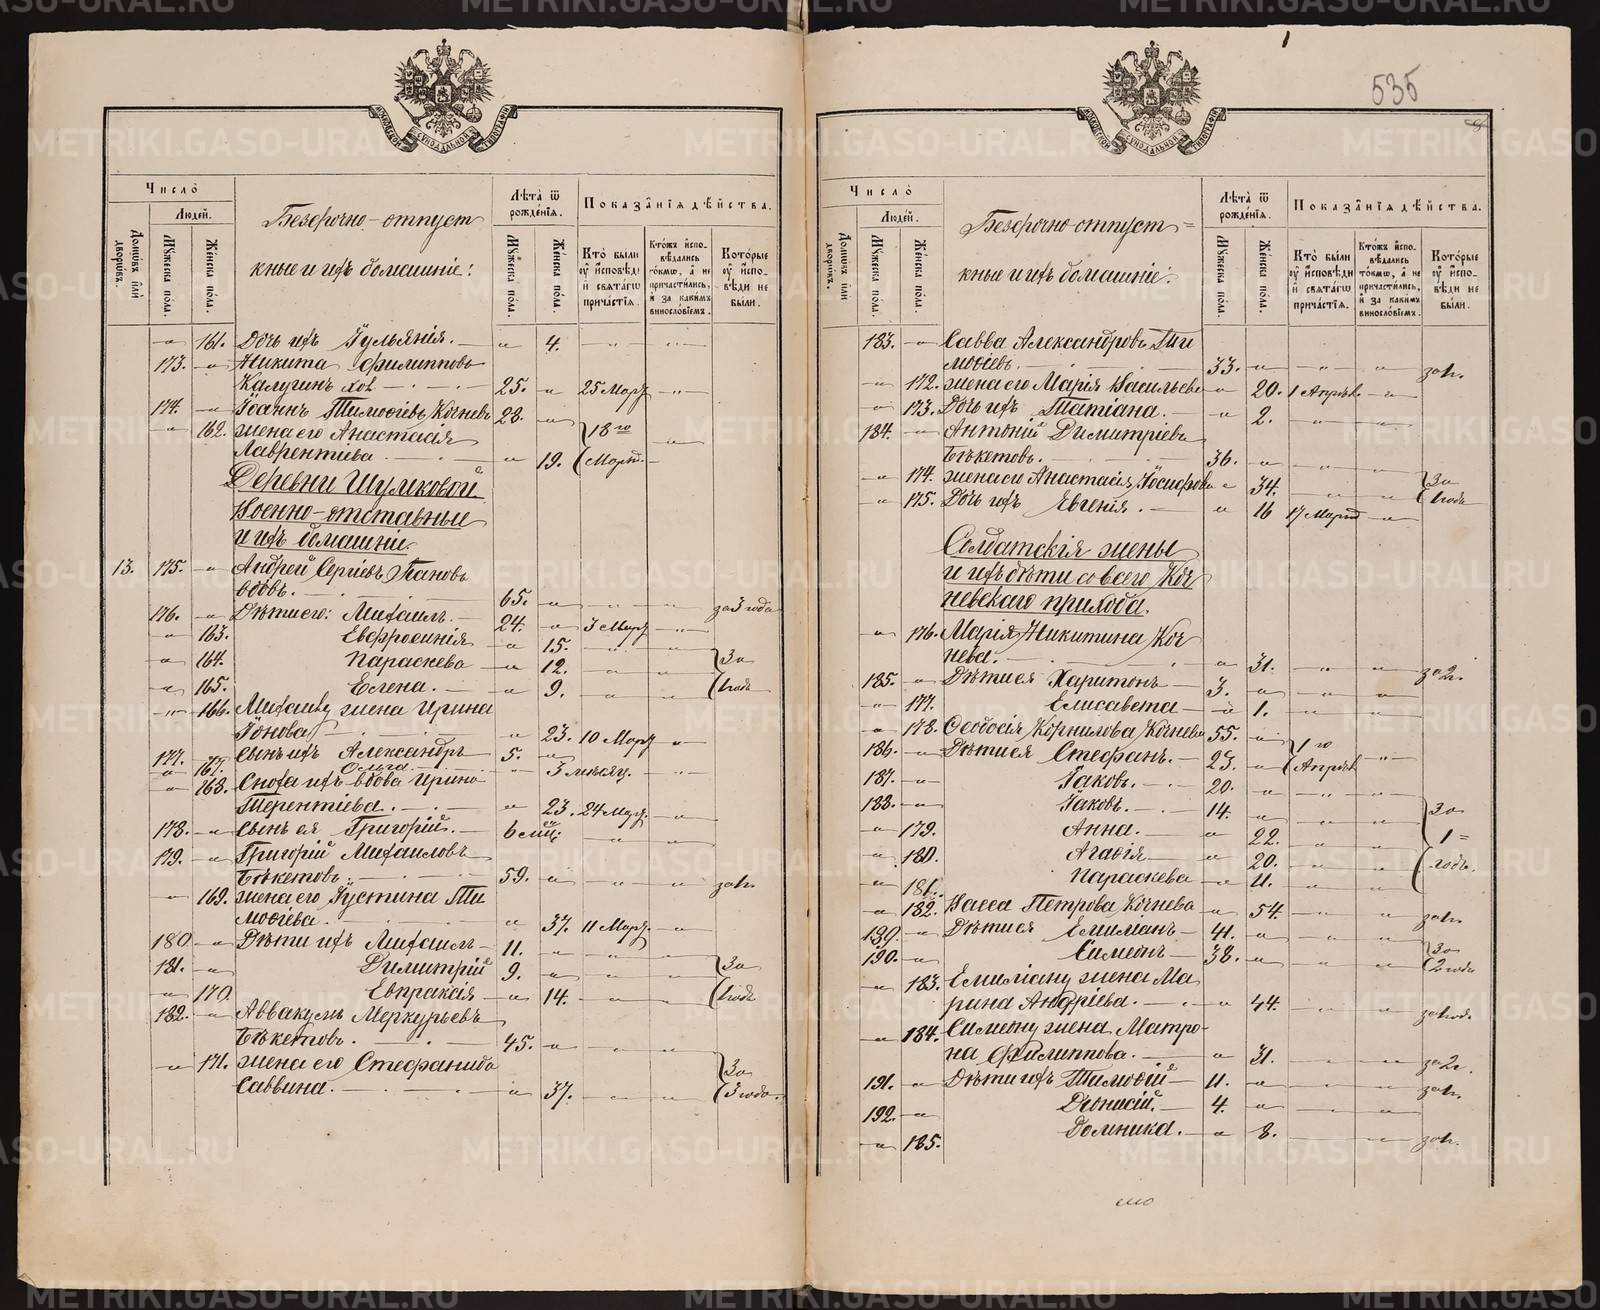 535
Число
Людей.
Домовъ или дворовъ.
Мужеска пола.
Женска пола.
Безсрочно-отпуск
ные и ихъ домашніе:
Лѣта ѿ рожденія.
Мужеска пола.
Женска пола.
Показанія дѣйства.
Кто были у исповѣди и святаго причастія.
Которые у исповѣди не были.
161. Дочь ихъ Іульянія. 4.
173. Никита Филипповъ
Калугинъ хол. 25. 25 Март
174. Іоаннъ Тимоѳіевъ Кочневъ 28.
162. жена его Анастасія 18го
Лаврентіева 19. Март.
Деревни Шумковой
Военно-отставные
и ихъ домашніе.
13. 175. Андрей Сергіевъ Пановъ
вдовъ. 65. за 3 года
176. Дѣти его: Михаилъ. 24. 3 Март
163. Евфросинія 15.
164. Параскева 12. За
165. Елена. 9. 1 годъ
166. Михаилу жена Ирина
Іонова 23. 10 Март
177. Сынъ ихъ Александръ 5.
167. Ольга 3 мѣсяц.
168. Сноха ихъ вдова Ирина
Терентіева. 23. 24 Март.
178. Сынъ ея Григорій. 6 мѣц.
179. Григорій Михаиловъ
Бѣкетовъ. 59. за 1г.
169. жена его Іустина Ти
моѳіева. 37. 11 Март.
180. Дѣти ихъ Михаилъ 11.
181. Димитрій 9. За
170. Евпраксія 14. 1 годъ
182. Аввакумъ Меркурьевъ
Бѣкетовъ. 45.
171. жена его Стефанида За
Саввина. 37. 3 года.
Число
Людей.
Домовъ или дворовъ.
Мужеска пола.
Женска пола.
Безсрочно-отпуск=
ные и ихъ домашніе:
Лѣта ѿ рожденія.
Мужеска пола.
Женска пола.
Показанія дѣйства.
Кто были у исповѣди и святаго причастія.
Которые у исповѣди не были.
183. Савва Александровъ Ти
моѳіевъ. 33. за 1г.
172. жена его Марія Васильева 20. 1 Апрѣл.
173. Дочь ихъ Татіана. 2.
184. Антоній Димитріевъ
Бѣкетовъ. 36.
174. жена его Анастасія Іосифова 34. За
175. Дочь ихъ Евгенія. 16 17 Март 1 годъ
Солдатскія жены
и ихъ дѣти со всего Коч
невскаго прихода.
176. Марія Никитина Коч
нева. 31. за 2г.
185. Дѣти ея Харитонъ 3.
177. Елисавета 1.
178. Ѳеодосія Корнилова Кочнева 55. 1го
186. Дѣти ея Стефанъ. 23. Апрѣл
187. Іаковъ. 20.
188. Іаковъ. 14. За
179. Анна. 22. 1=
180. Агаѳія 20. годъ.
181. Параскева 11.
182. Васса Петрова Кочнева 54. за 1г.
189. Дѣти ея Емиліанъ 41. За
190. Симеонъ 38. 2 года
183. Емиліану жена Ма
рина Андріева. 44. за 1 год.
184. Симеону жена Матро-
на Филиппова. 31. за 2г.
191. Дѣти ихъ Тимоѳій 11. за 1г.
192. Діонисій. 4.
185. Домника. 8. за 1г.
METRIKI.GASO-URAL.RU